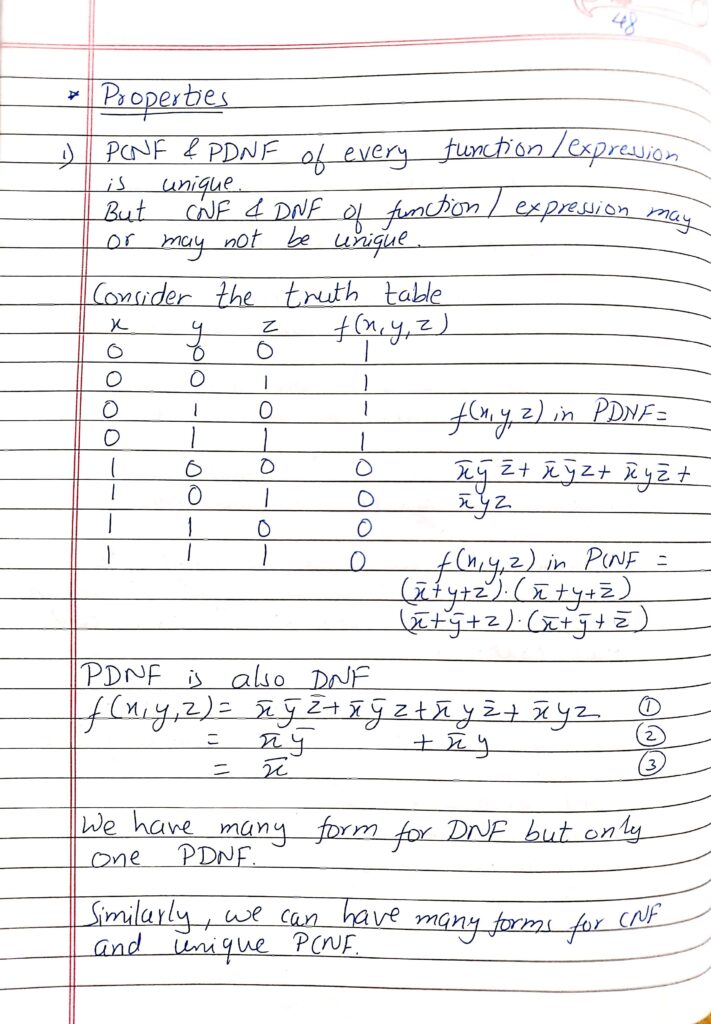 48
* Properties
1) PCNF & PDNF of every function/expression
is unique.
But CNF & DNF of function/expression may
or may not be unique.
Consider the truth table
x y z f(x,y,z)
0 0 0 1
0 0 1 1
0 1 0 1 f(x,y,z) in PDNF =
0 1 1 1
1 0 0 0 x̄ȳz̄ + x̄ȳz + x̄yz̄ +
1 0 1 0 x̄yz
1 1 0 0
1 1 1 0 f(x,y,z) in PCNF =
(x̄+y+z).(x̄+y+z̄)
(x̄+ȳ+z).(x̄+ȳ+z̄)
PDNF is also DNF
f(x,y,z) = x̄ȳz̄ + x̄ȳz + x̄yz̄ + x̄yz ①
= x̄ȳ + x̄y ②
= x̄ ③
We have many form for DNF but only
one PDNF.
Similarly, we can have many forms for CNF
and unique PCNF.